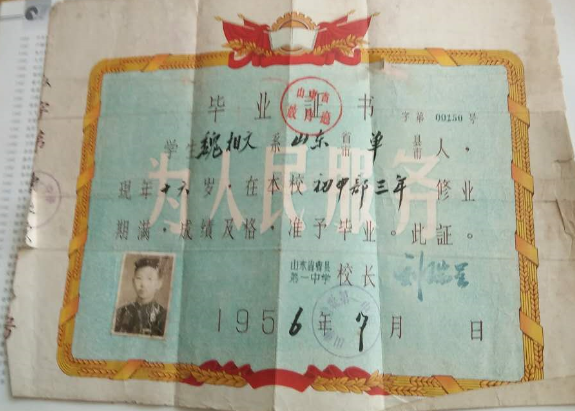 毕业証书
字第00150号
学生魏相文系山东省市单县市人，
现年十六岁，在本校初中部三年修业
期满，成绩及格，准予毕业。此証。
为人民服务
山东省曹县
第一中学
校长
1956年7月 日